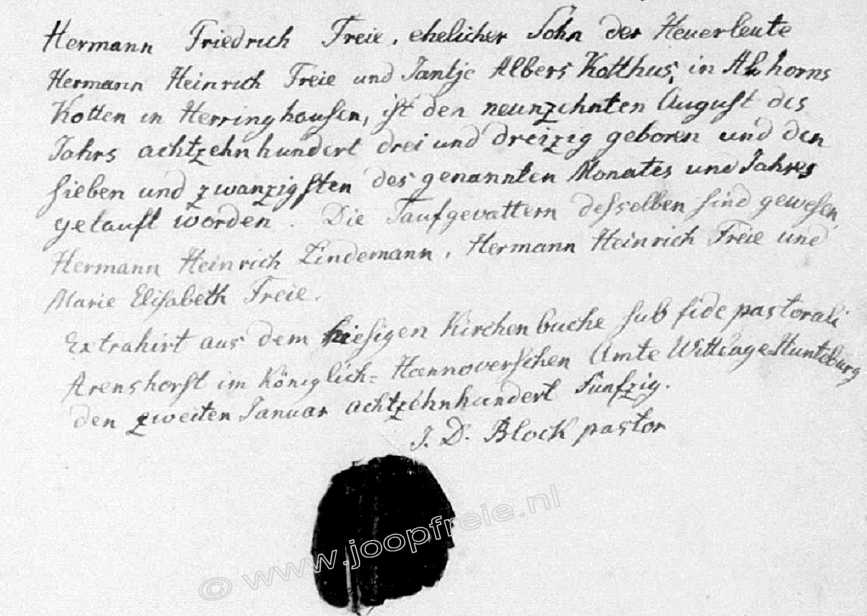 Hermann Friedrich Freie, ehelicher Sohn der Heuerleute
Hermann Heinrich Freie und Jantje Albers Kotthus, in Ahorns
Kotten in Herringhausen, ist den neunzehnten August des
Jahrs achtzehnhundert drei und dreizig geboren und den
sieben und zwanzigsten des genannten Monates und Jahres
getauft worden. Die Taufgevattern desselben sind gewesen,
Hermann Heinrich Lindemann, Hermann Heinrich Freie und
Marie Elisabeth Freie.
Extrahirt aus dem hiesigen Kirchenbuche sub fide pastorali
Arenshorst im Königlich-Hannoverschen Amte Wittlage Hunteburg
den zweiten Januar achtzehnhundert funfzig.
J. D. Block pastor
© www.joopfreie.nl